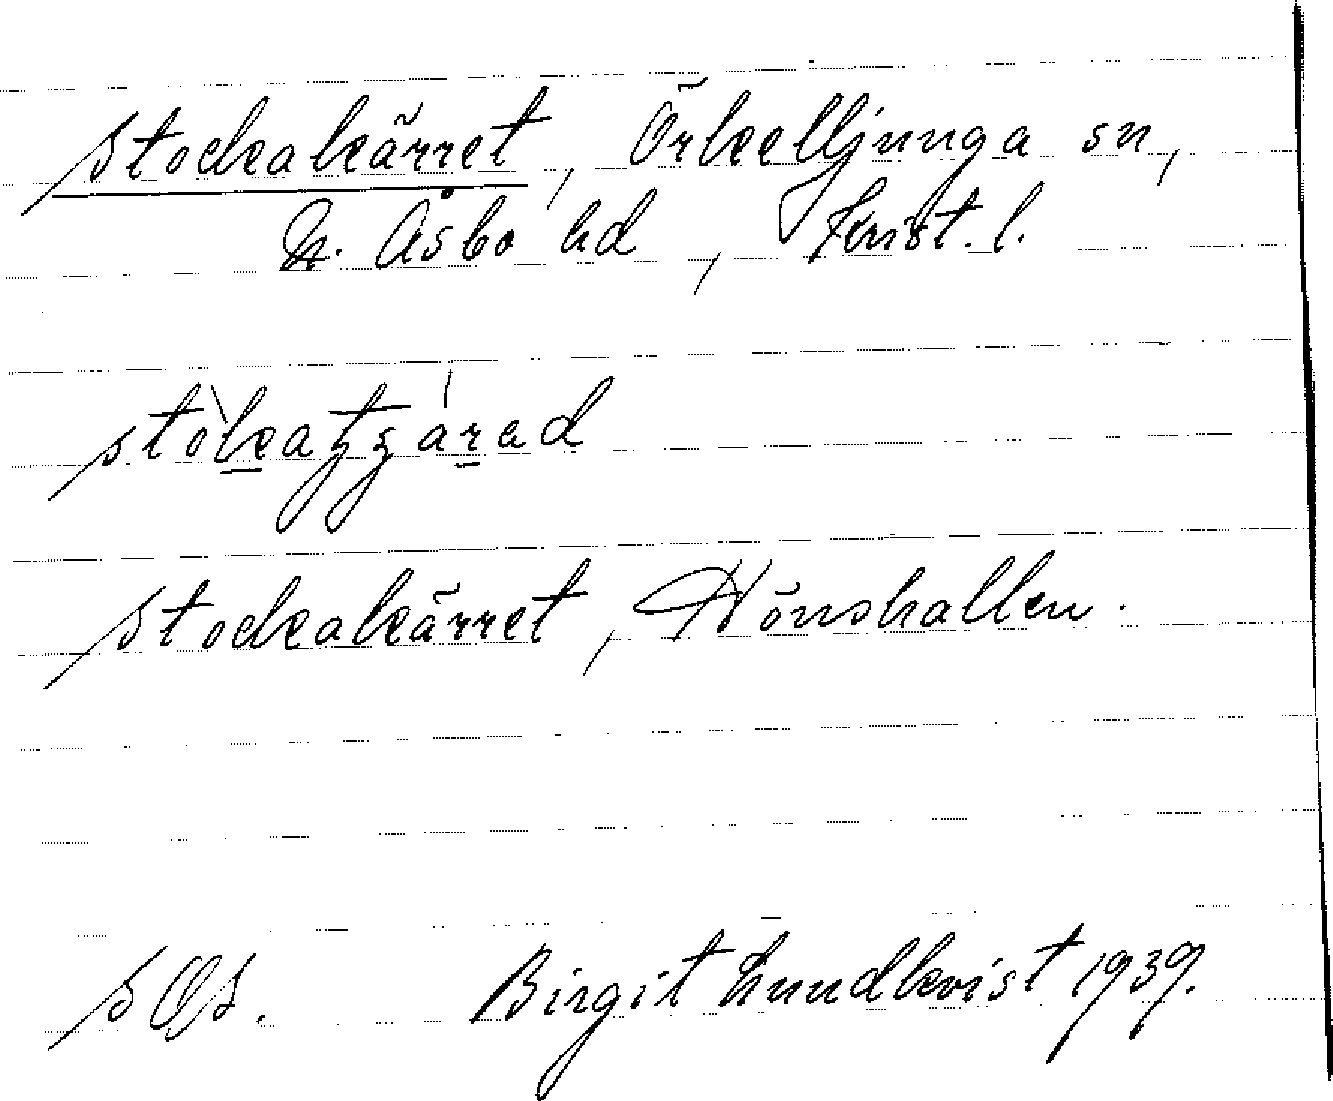 Stockakärret, Örkelljunga sn,
N. Åsbo hd, Krist. l.
Stockakärret, Hönshallen.
Birgit Lundkvist 1939.